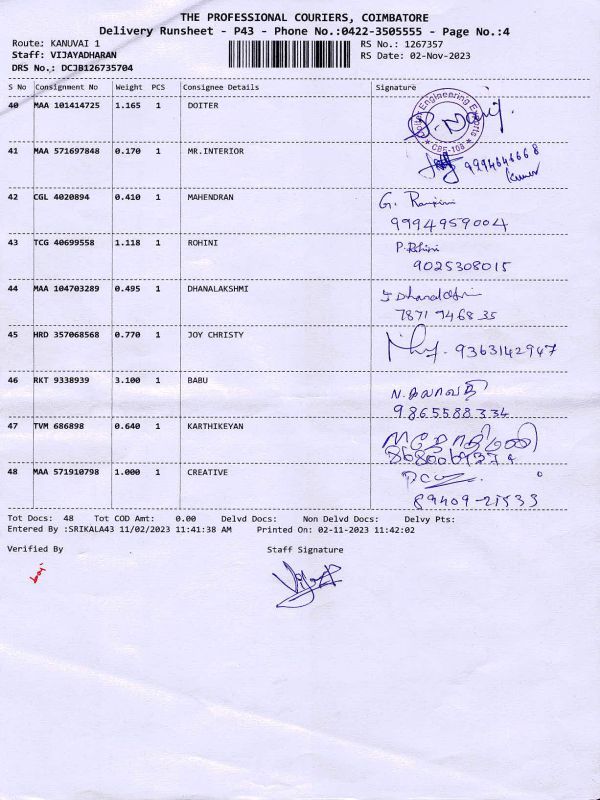 THE PROFESSIONAL COURIERS, COIMBATORE
Delivery Runsheet - P43 - Phone No.:0422-3505555 - Page No.:4
Route: KANUVAI 1
RS No.: 1267357
Staff: VIJAYADHARAN
RS Date: 02-Nov-2023
DRS No.: DCJB126735704
S No Consignment No Weight PCS Consignee Details Signature
40 MAA 101414725 1.165 1 DOITER
Engineering
CBE-108
41 MAA 571697848 0.170 1 MR.INTERIOR
9994646668
kumar
42 CGL 4020894 0.410 1 MAHENDRAN
G. Ranjini
9994959004
43 TCG 40699558 1.118 1 ROHINI
P. Rohini
9025308015
44 MAA 104703289 0.495 1 DHANALAKSHMI
7871 7468 35
45 HRD 357068568 0.770 1 JOY CHRISTY
9363142947
46 RKT 9338939 3.100 1 BABU
N. கலாவதி
9865588334
47 TVM 686898 0.640 1 KARTHIKEYAN
48 MAA 571910798 1.000 1 CREATIVE
Tot Docs: 48 Tot COD Amt: 0.00 Delvd Docs: Non Delvd Docs: Delvy Pts:
Entered By :SRIKALA43 11/02/2023 11:41:38 AM Printed On: 02-11-2023 11:42:02
Verified By Staff Signature